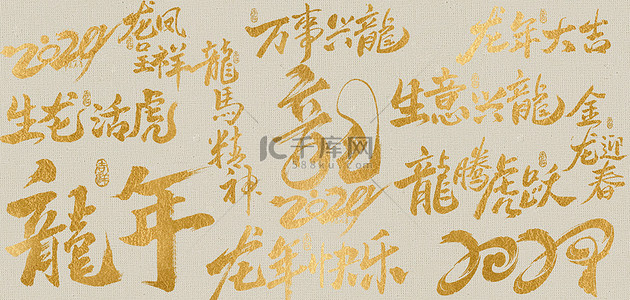 2024
龙凤
呈祥
生龙活虎
龍年
龍馬精神
万事兴龍
龍
2024
龙年快乐
龙年大吉
生意兴龍
金龙
迎春
龍腾虎跃
2024
千库网
588ku.com